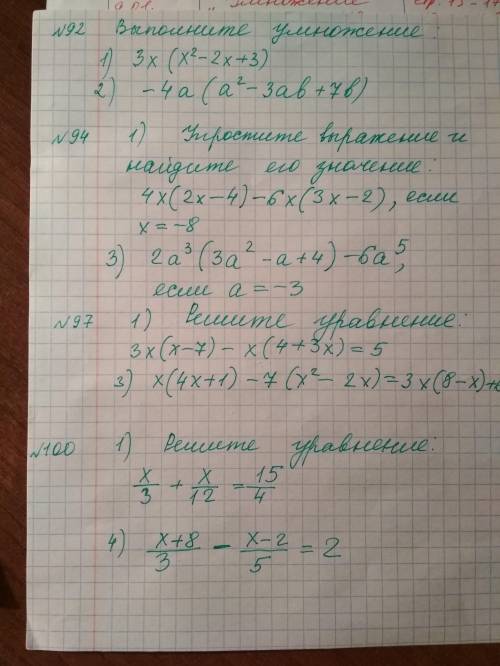 "Умножение
№92 Выполните умножение:
1) 3x (x² - 2x + 3)
2) -4a (a² - 3ab + 7b)
№94 1) Упростите выражение и
найдите его значение:
4x(2x - 4) - 6x(3x - 2), если
x = -8
3) 2a³ (3a² - a + 4) - 6a⁵,
если a = -3
№97 1) Решите уравнение:
3x(x - 7) - x(4 + 3x) = 5
3) x(4x + 1) - 7(x² - 2x) = 3x(8 - x) +
№100 1) Решите уравнение:
x/3 + x/12 = 15/4
4) x+8/3 - x-2/5 = 2